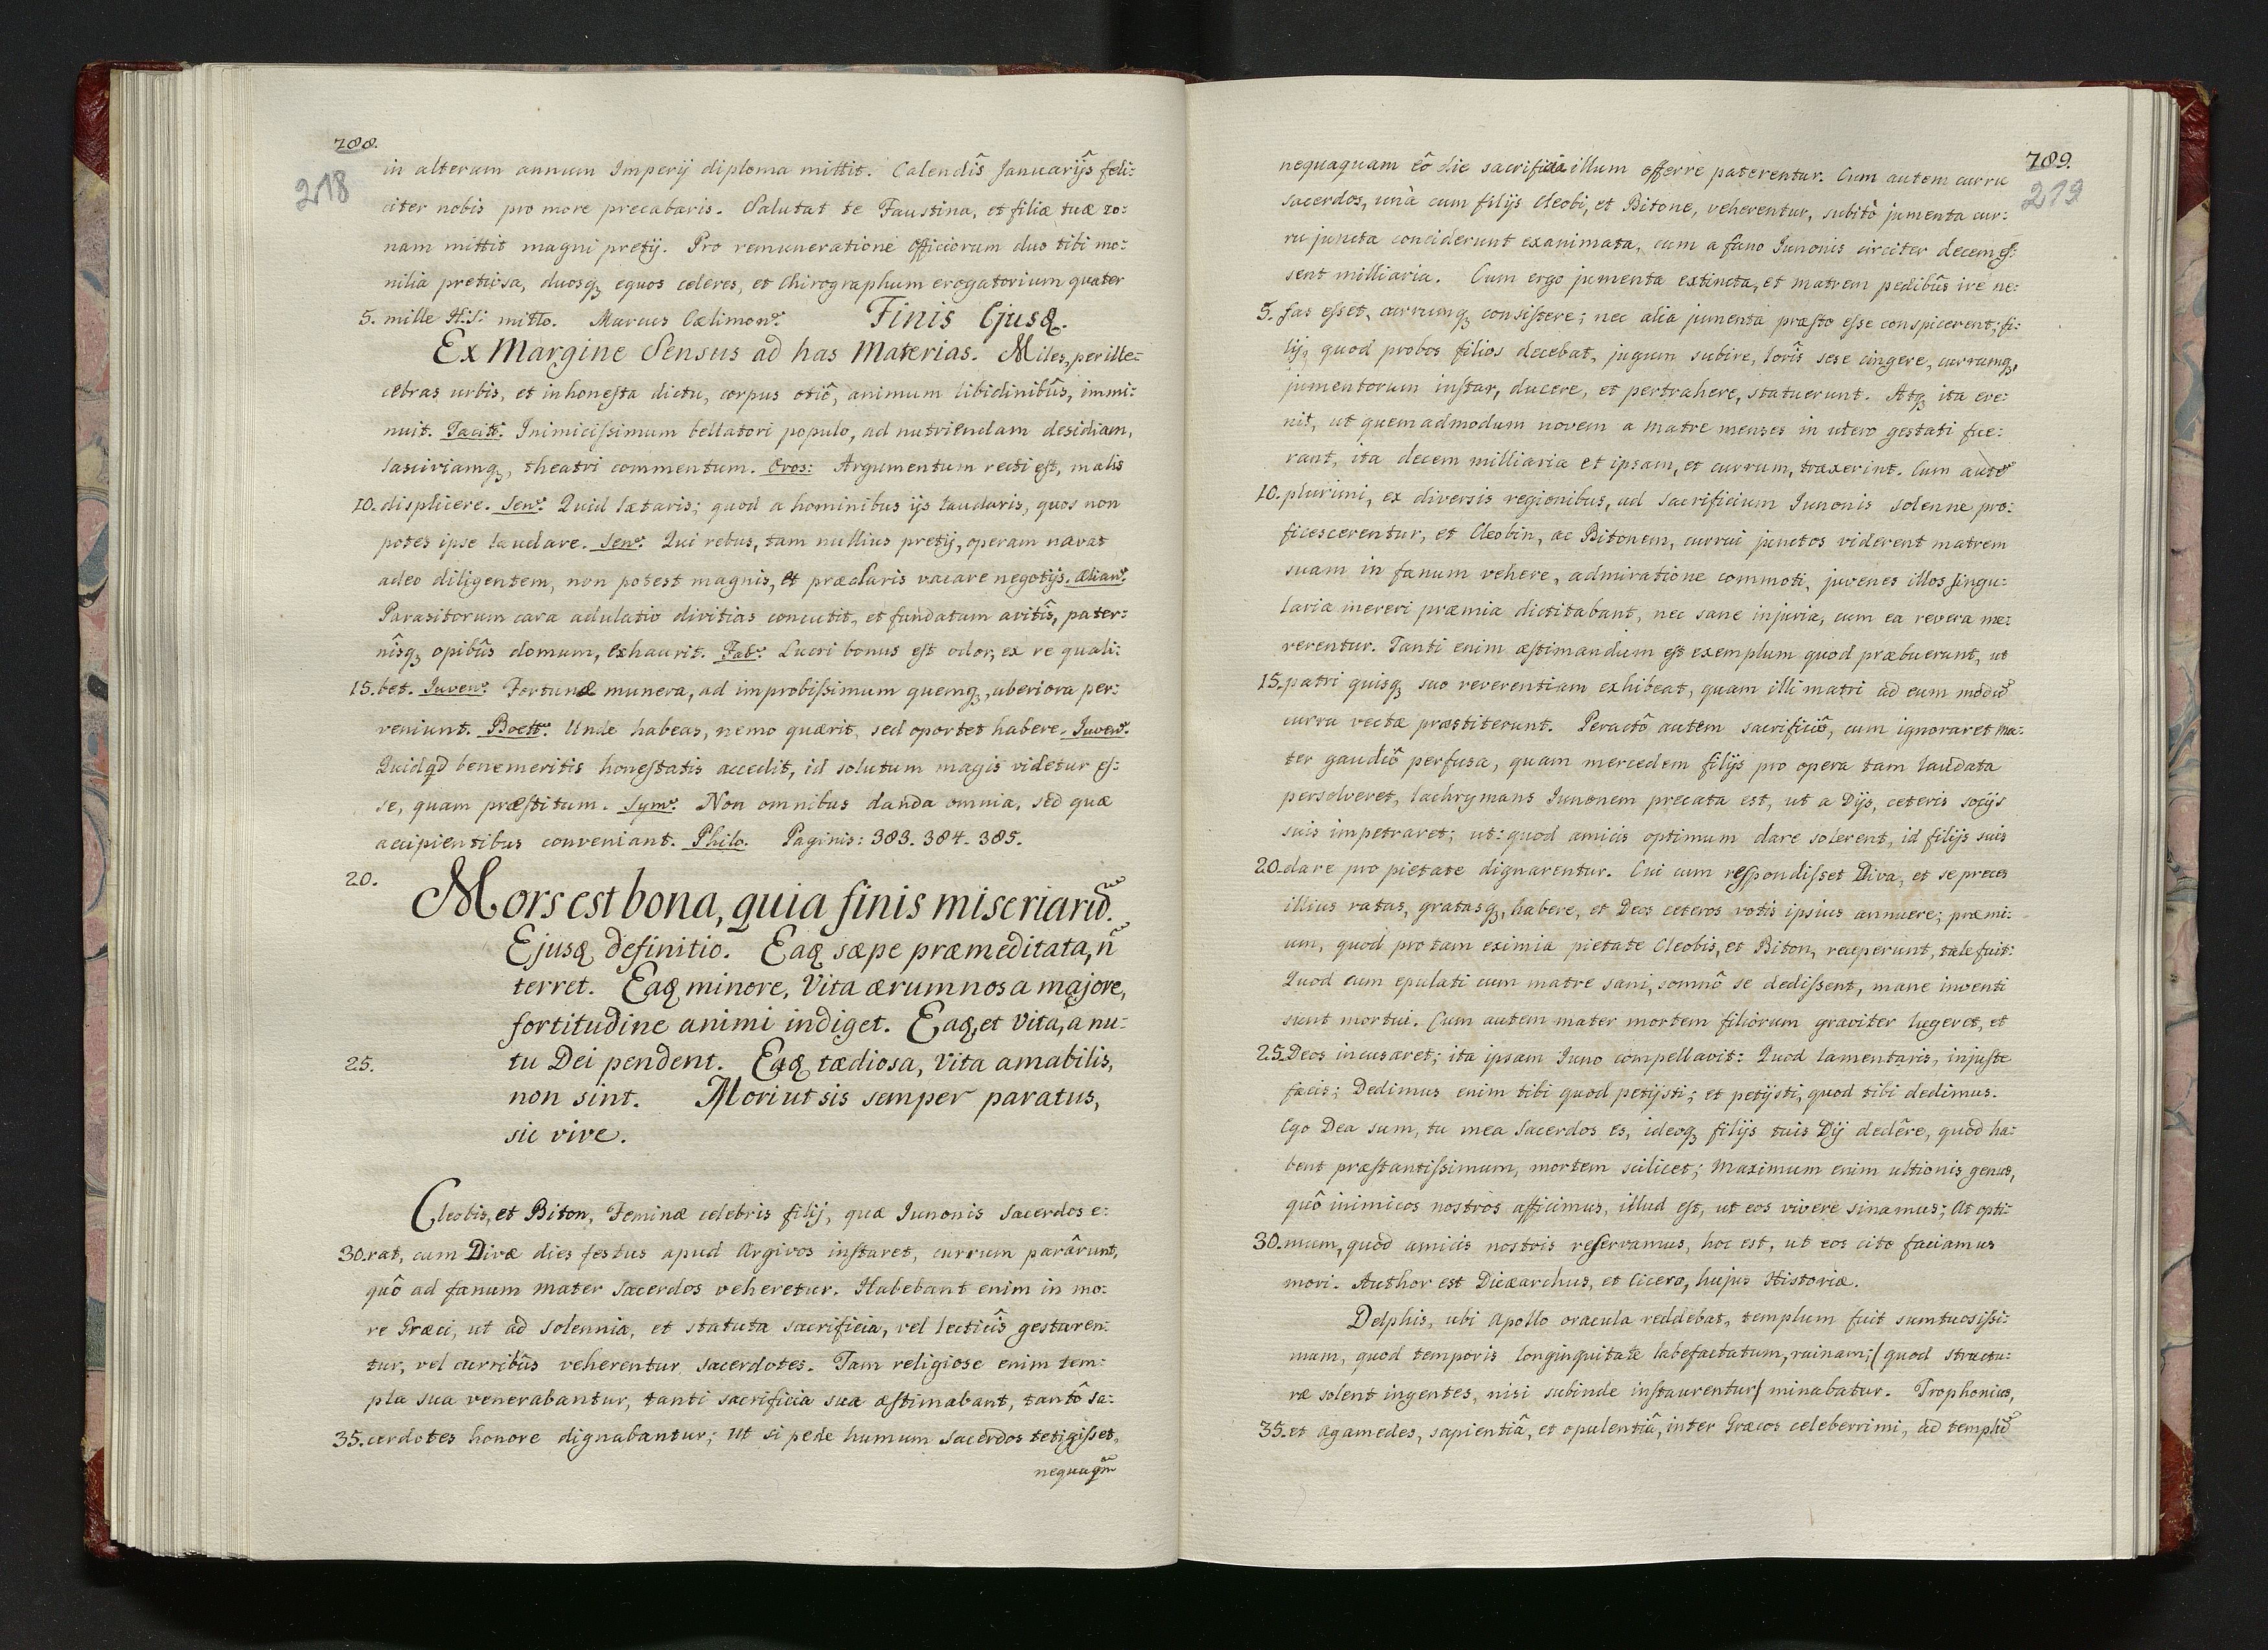 788.
218
in alterum annum Imperij diploma mittit. Calendîs Januarijs feli:
citer nobis pro more precabaris. Salutat te Faustina, et filiæ tuæ zo:
nam mittit magni pretij. Pro remuneratione officiorum duo tibi mo:
nilia pretiosa, duosq, equos celeres, et Chirographum erogatorium quater
5. mille H.S: mitto. Marcus Cælimon. Finis Ejusq.
Ex Margine Sensus ad has Materias. Miles, per ille:
cebras urbis, et inhonesta dictu, corpus otiô, animum libidinibûs, immi:
nuit. Tacit: Inimicissimum bellatori populo, ad nutriendam desidiam,
lasciviamq, theatri commentum. Oros: Argumentum recti est, malis
10. displicere. Sen: Quid lætaris; quod a hominibus ijs laudaris, quos non
potes ipse laudare. Sen: Qui rebus, tam nullius pretij, operam navat
adeo diligentem, non potest magnis, et præclaris vacare negotijs. Ælian:
Parasitorum cara adulatio divitias concutit, et fundatam avitîs, pater:
nîsq, opibûs domum, exhaurit. Fab: Lucri bonus est odor, ex re quali:
15. bet. Juven: Fortunæ munera, ad improbissimum quemq, uberiora per:
veniunt. Boet: Unde habeas, nemo quærit, sed oportet habere. Juven:
Quidqd benemeritis honestatis accedit, id solutum magis videtur es:
se, quam præstitum. Sym: Non omnibus danda omnia, sed quæ
accipientibus conveniant. Philo. Paginis: 383. 384. 385.
20. Mors est bona, quia finis miseriarũ.
Ejusq definitio. Eaq sæpe præmeditata, ñ
terret. Eaq minore, Vita ærumnosa majore,
fortitudine animi indiget. Eaq, et Vita, a nu:
25. tu Dei pendent. Eaq tædiosa, Vita amabilis,
non sint. Mori ut sis semper paratus,
sic vive.
Cleobis, et Biton, Feminæ celebris filij, quæ Junonis Sacerdos e:
30. rat, cum Divæ dies festus apud Argivos instaret, currum parârunt,
quô ad fanum Mater Sacerdos veheretur. Habebant enim in mo:
re Græci, ut ad Solennia, et statuta sacrificia, vel lecticîs gestaren:
tur, vel curribûs veherentur sacerdotes. Tam religiose enim tem:
pla sua venerabantur, tanti sacrificia sua æstimabant, tantô Sa:
35. cerdotes honore dignabantur; Ut si pede humum Sacerdos tetigisset,
nequaqm̃
789.
219
nequaquam eô die sacrificia illum offerre paterentur. Cum autem curru
Sacerdos, unà cum filijs Cleobi, et Bitone, veherentur, subitò jumenta cur:
ru juncta conciderunt exanimata, cum a fano Junonis circiter decem es:
sent milliaria. Cum ergo jumenta extincta, et matrem pedibûs ire ne:
5. fas esset, currumq, consistere; nec alia jumenta præsto esse conspicerent; fi:
lij, quod probos filios decebat, jugum subire, lorîs sese cingere, currumq,
jumentorum instar, ducere, et pertrahere, statuerunt. Atq, ita eve:
nit, ut quemadmodum novem a matre menses in utero gestati fue:
rant, ita decem milliaria et ipsam, et currum, traxerint. Cum autẽ
10. plurimi, ex diversis regionibus, ad Sacrificium Junonis solenne pro:
ficescerentur, et Cleobin, ac Bitonem, currui junctos viderent matrem
suam in fanum vehere, admiratione commoti, juvenes illos singu:
laria mereri præmia dictitabant, nec sane injuria, cum ea revera me:
rerentur. Tanti enim æstimandum est exemplum quod præbuerunt, ut
15. patri quisq, suo reverentiam exhibeat, quam illi matri ad eum modũ
curru vectæ præstiterunt. Peractô autem sacrificiô, cum ignoraret ma:
ter gaudiô perfusa, quam mercedem filijs pro opera tam laudata
persolveret, lachrymans Junonem precata est, ut a Dijs, ceteris socijs
suis impetraret; ut: quod amicis optimum dare solerent, id filijs suis
20. dare pro pietate dignarentur. Cui cum respondisset Diva, et se preces
illius ratas, gratasq, habere, et Deos ceteros votis ipsius annuere; præmi:
um, quod pro tam eximia pietate Cleobis, et Biton, receperunt, tale fuit:
Quod cum epulati cum matre sani, somnô se dedissent, mane inventi
sunt mortui. Cum autem mater mortem filiorum graviter lugeret, et
25. Deos incusaret; ita ipsam Juno compellavit: Quod lamentaris, injuste
facis; Dedimus enim tibi quod petijsti; et petijsti, quod tibi dedimus.
Ego Dea sum, tu mea Sacerdos es, ideoq, filijs tuis Dij dedêre, quod ha:
bent præstantissimum, mortem scilicet; Maximum enim ultionis genus,
quô inimicos nostros afficimus, illud est, ut eos vivere sinamus; At opti:
30. mum, quod amicis nostris reservamus, hoc est, ut eos cito faciamus
mori. Author est Dicæarchus, et Cicero, hujus Historiæ.
Delphis, ubi Apollo oracula reddebat, templum fuit sumtuosissi:
mum, quod temporis longinquitate labefactatum, ruinam; (quod structu:
ræ solent ingentes, nisi subinde instaurentur) minabatur. Trophonius,
35. et Agamedes, sapientiâ, et opulentiâ, inter Græcos celeberrimi, ad templũ